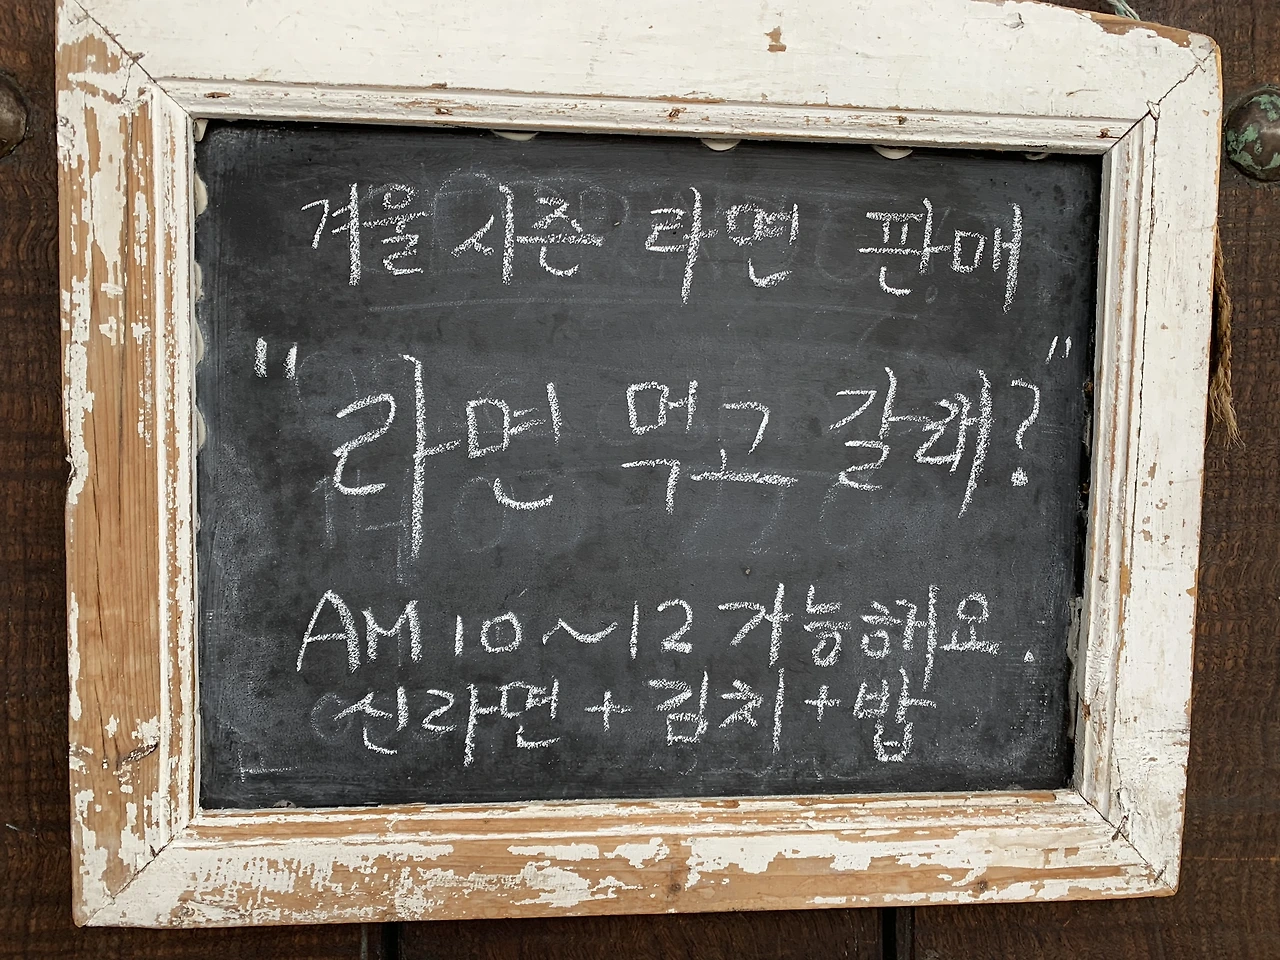 겨울 시즌 라면 판매
"라면 먹고 갈래?"
AM 10~12 가능해요.
신라면 + 김치 + 밥